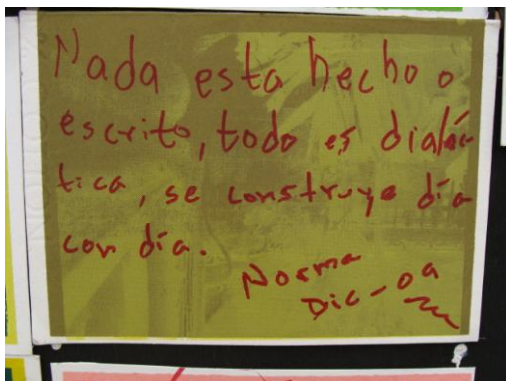 Nada esta hecho o
escrito, todo es dialéc-
tica, se construye día
con día.
Norma
Dic-02